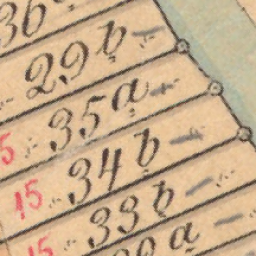 36
29 b
35 a
15 34 b
15 33 b
a